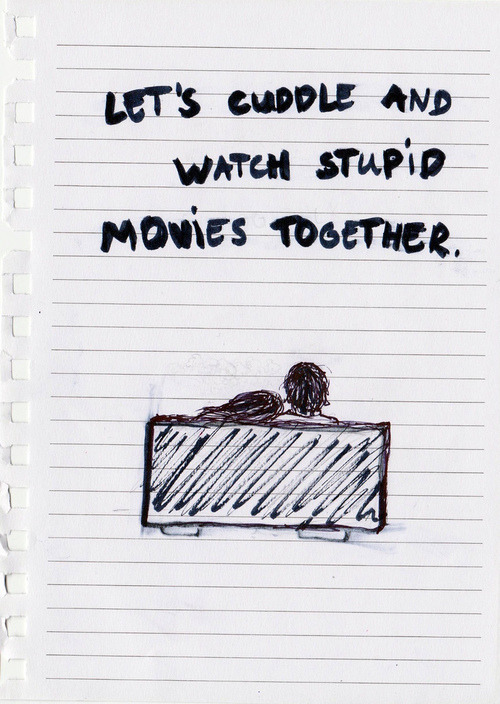 LET'S CUDDLE AND
WATCH STUPiD
MOViES TOGETHER.